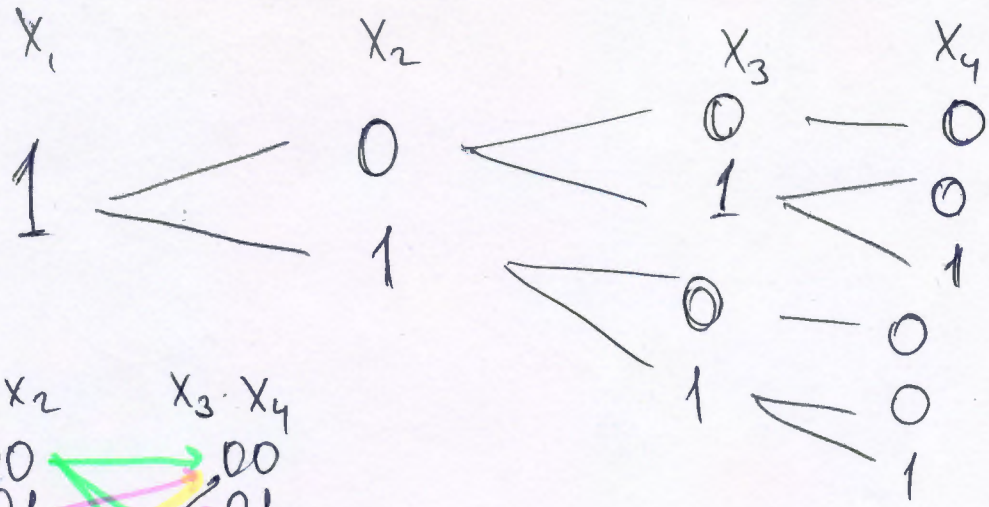 X₁ X₂ X₃ X₄
0 0 0
1 1 0
1 1
0 0
1 0
1
X₂ X₃ · X₄
0 00
01 01